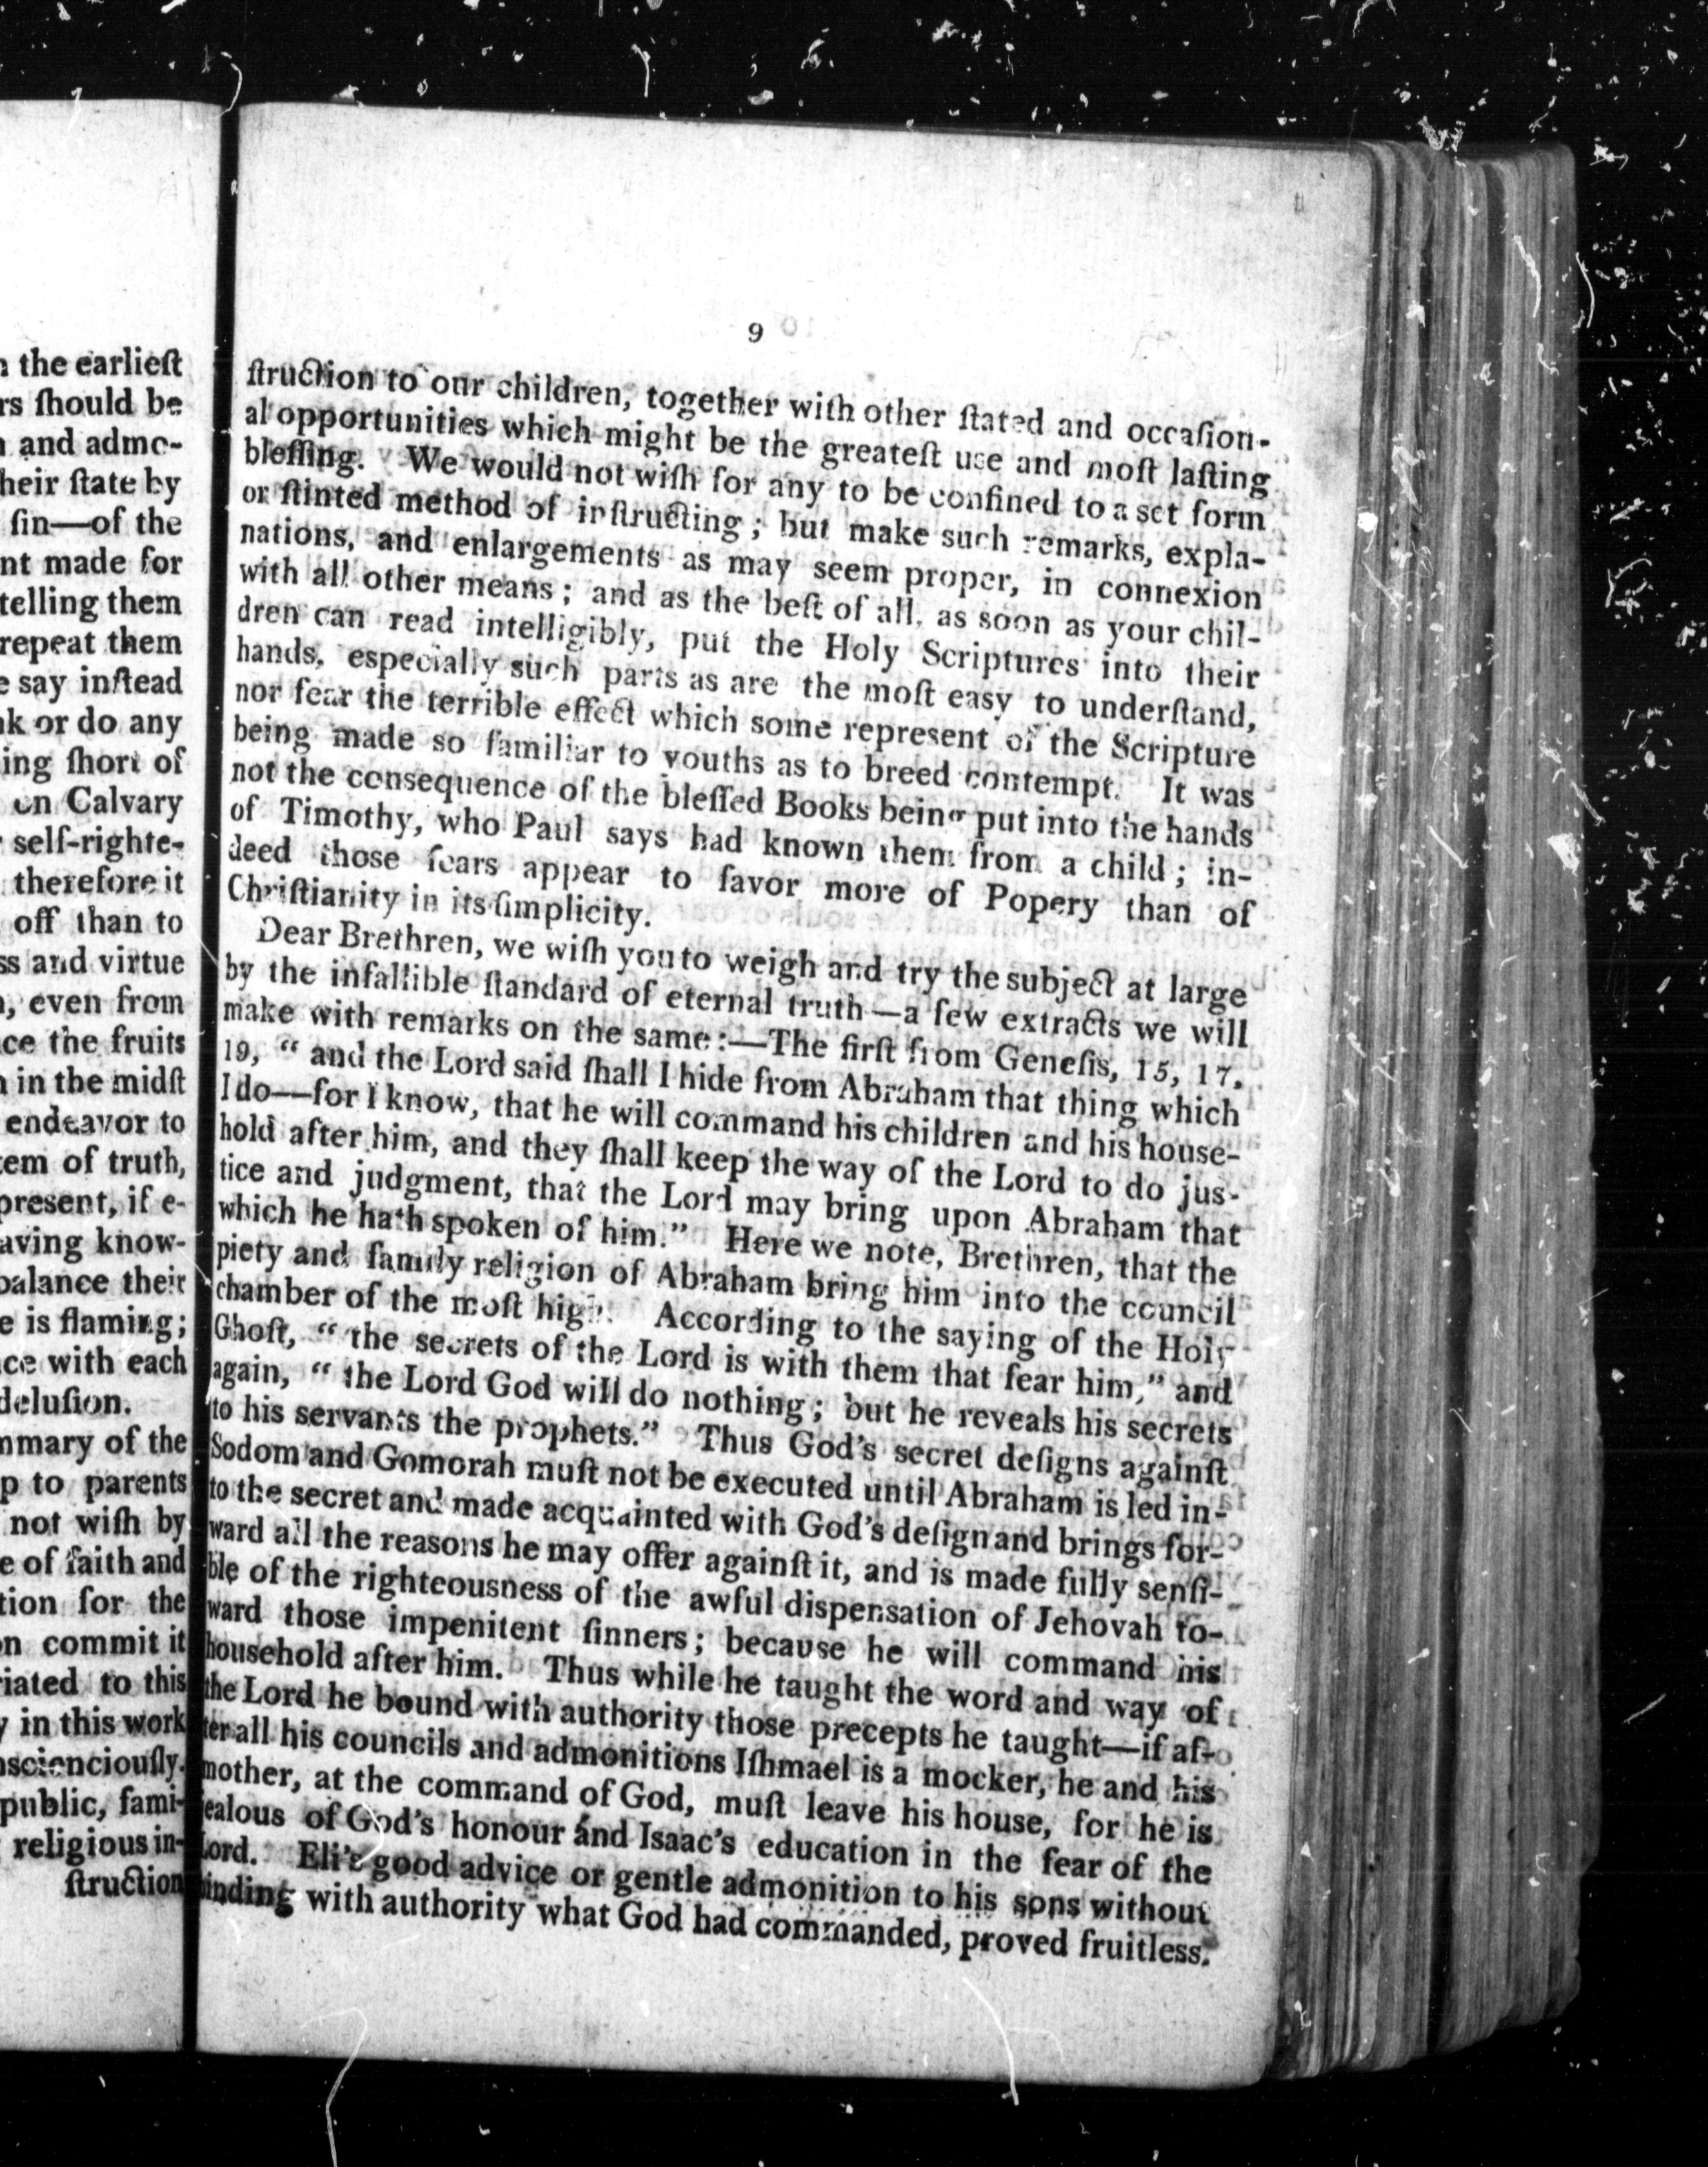 n the earlieſt
rs ſhould be
n and admo-
heir ſtate by
ſin—of the
nt made for
telling them
repeat them
e say inſtead
nk or do any
ing ſhort of
on Calvary
r self-righte-
therefore it
off than to
ss and virtue
n, even from
ce the fruits
n in the midſt
endeavor to
tem of truth,
present, if e-
aving know-
balance their
e is flaming;
ce with each
deluſion.
mmary of the
p to parents
not wiſh by
e of faith and
tion for the
on commit it
riated to this
y in this work
nscienciouſly.
public, fami-
religious in-
ſtruction
9
ſtruction to our children, together with other ſtated and occaſion-
al opportunities which might be the greateſt use and moſt laſting
bleſſing. We would not wiſh for any to be confined to a set form
or ſtinted method of inſtructing; but make such remarks, expla-
nations, and enlargements as may seem proper, in connexion
with all other means; and as the beſt of all, as soon as your chil-
dren can read intelligibly, put the Holy Scriptures into their
hands, especially such parts as are the moſt easy to underſtand,
nor fear the terrible effect which some represent of the Scripture
being made so familiar to youths as to breed contempt. It was
not the consequence of the bleſſed Books being put into the hands
of Timothy, who Paul says had known them from a child; in-
deed those fears appear to favor more of Popery than of
Chriſtianity in its ſimplicity.
Dear Brethren, we wiſh you to weigh and try the subject at large
by the infallible ſtandard of eternal truth—a few extracts we will
make with remarks on the same:—The firſt from Geneſis, 15, 17,
19, “ and the Lord said ſhall I hide from Abraham that thing which
I do—for I know, that he will command his children and his house-
hold after him, and they ſhall keep the way of the Lord to do jus-
tice and judgment, that the Lord may bring upon Abraham that
which he hath spoken of him.” Here we note, Brethren, that the
piety and family religion of Abraham bring him into the council
chamber of the moſt high. According to the saying of the Holy
Ghoſt, “ the secrets of the Lord is with them that fear him,” and
again, “ the Lord God will do nothing; but he reveals his secrets
to his servants the prophets.” Thus God's secret deſigns againſt
Sodom and Gomorah muſt not be executed until Abraham is led in-
to the secret and made acquainted with God's deſign and brings for-
ward all the reasons he may offer againſt it, and is made fully senſi-
ble of the righteousness of the awful dispensation of Jehovah to-
ward those impenitent ſinners; because he will command his
household after him. Thus while he taught the word and way of
the Lord he bound with authority those precepts he taught—if af-
ter all his councils and admonitions Iſhmael is a mocker, he and his
mother, at the command of God, muſt leave his house, for he is
jealous of God's honour and Isaac's education in the fear of the
Lord. Eli's good advice or gentle admonition to his sons without
binding with authority what God had commanded, proved fruitless.